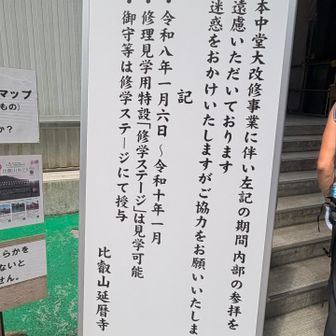 本中堂大改修事業に伴い左記の期間 内部の参拝を
遠慮いただいております
迷惑をおかけいたしますがご協力をお願いいたしま
記
・令和八年一月六日~令和十年一月
・修理見学用特設「修学ステージ」は見学可能
・御守等は修学ステージにて授与
比叡山延暦寺
マップ
もの)
か?
らかを
ないと
せん。